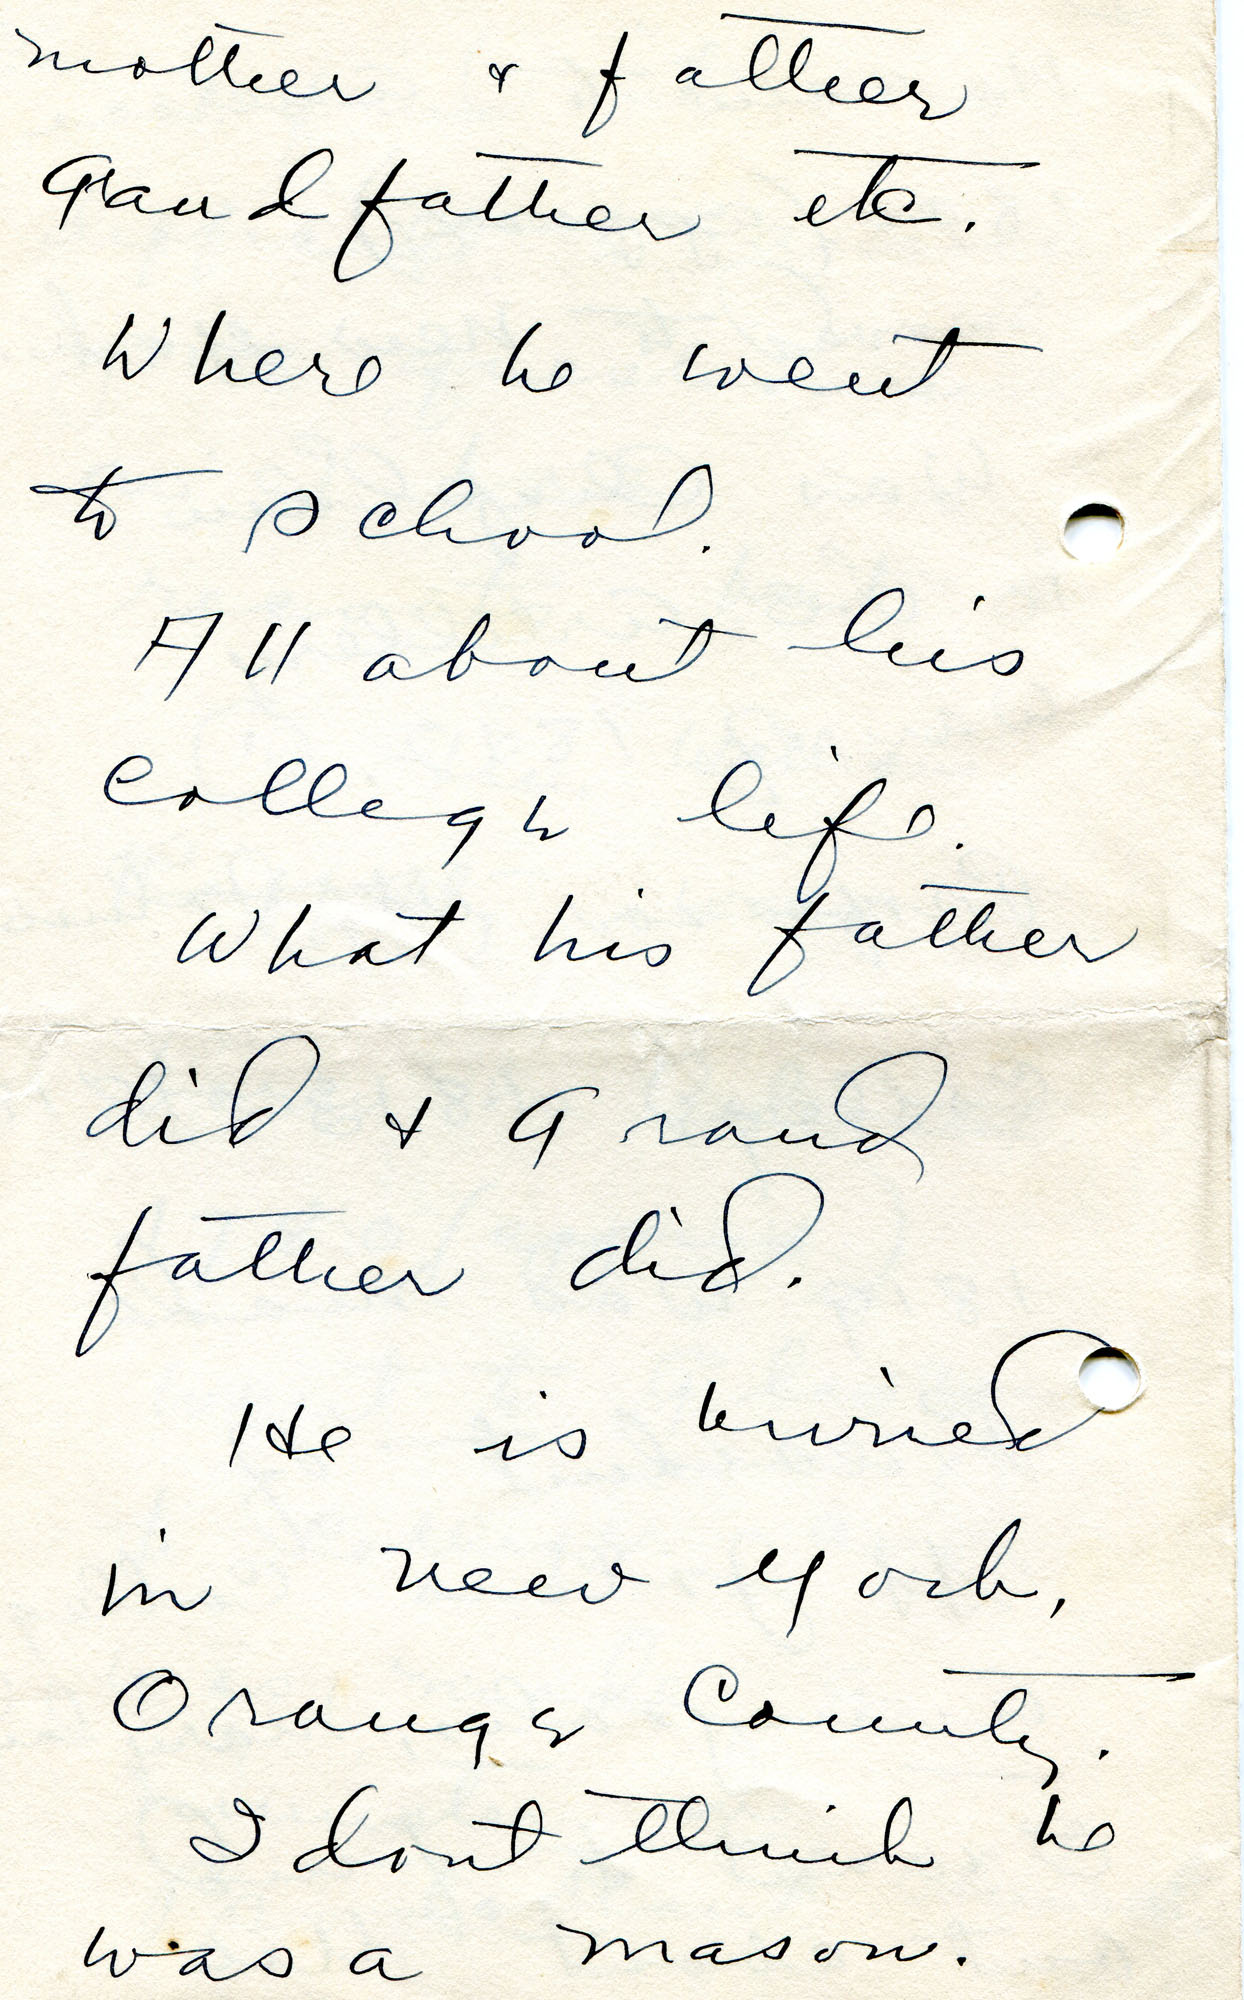 mother & father
Grandfather etc.
Where he went
to school.
All about his
college life.
What his father
did & Grand
father did.
He is buried
in New York,
Orange County.
I dont think he
was a mason.